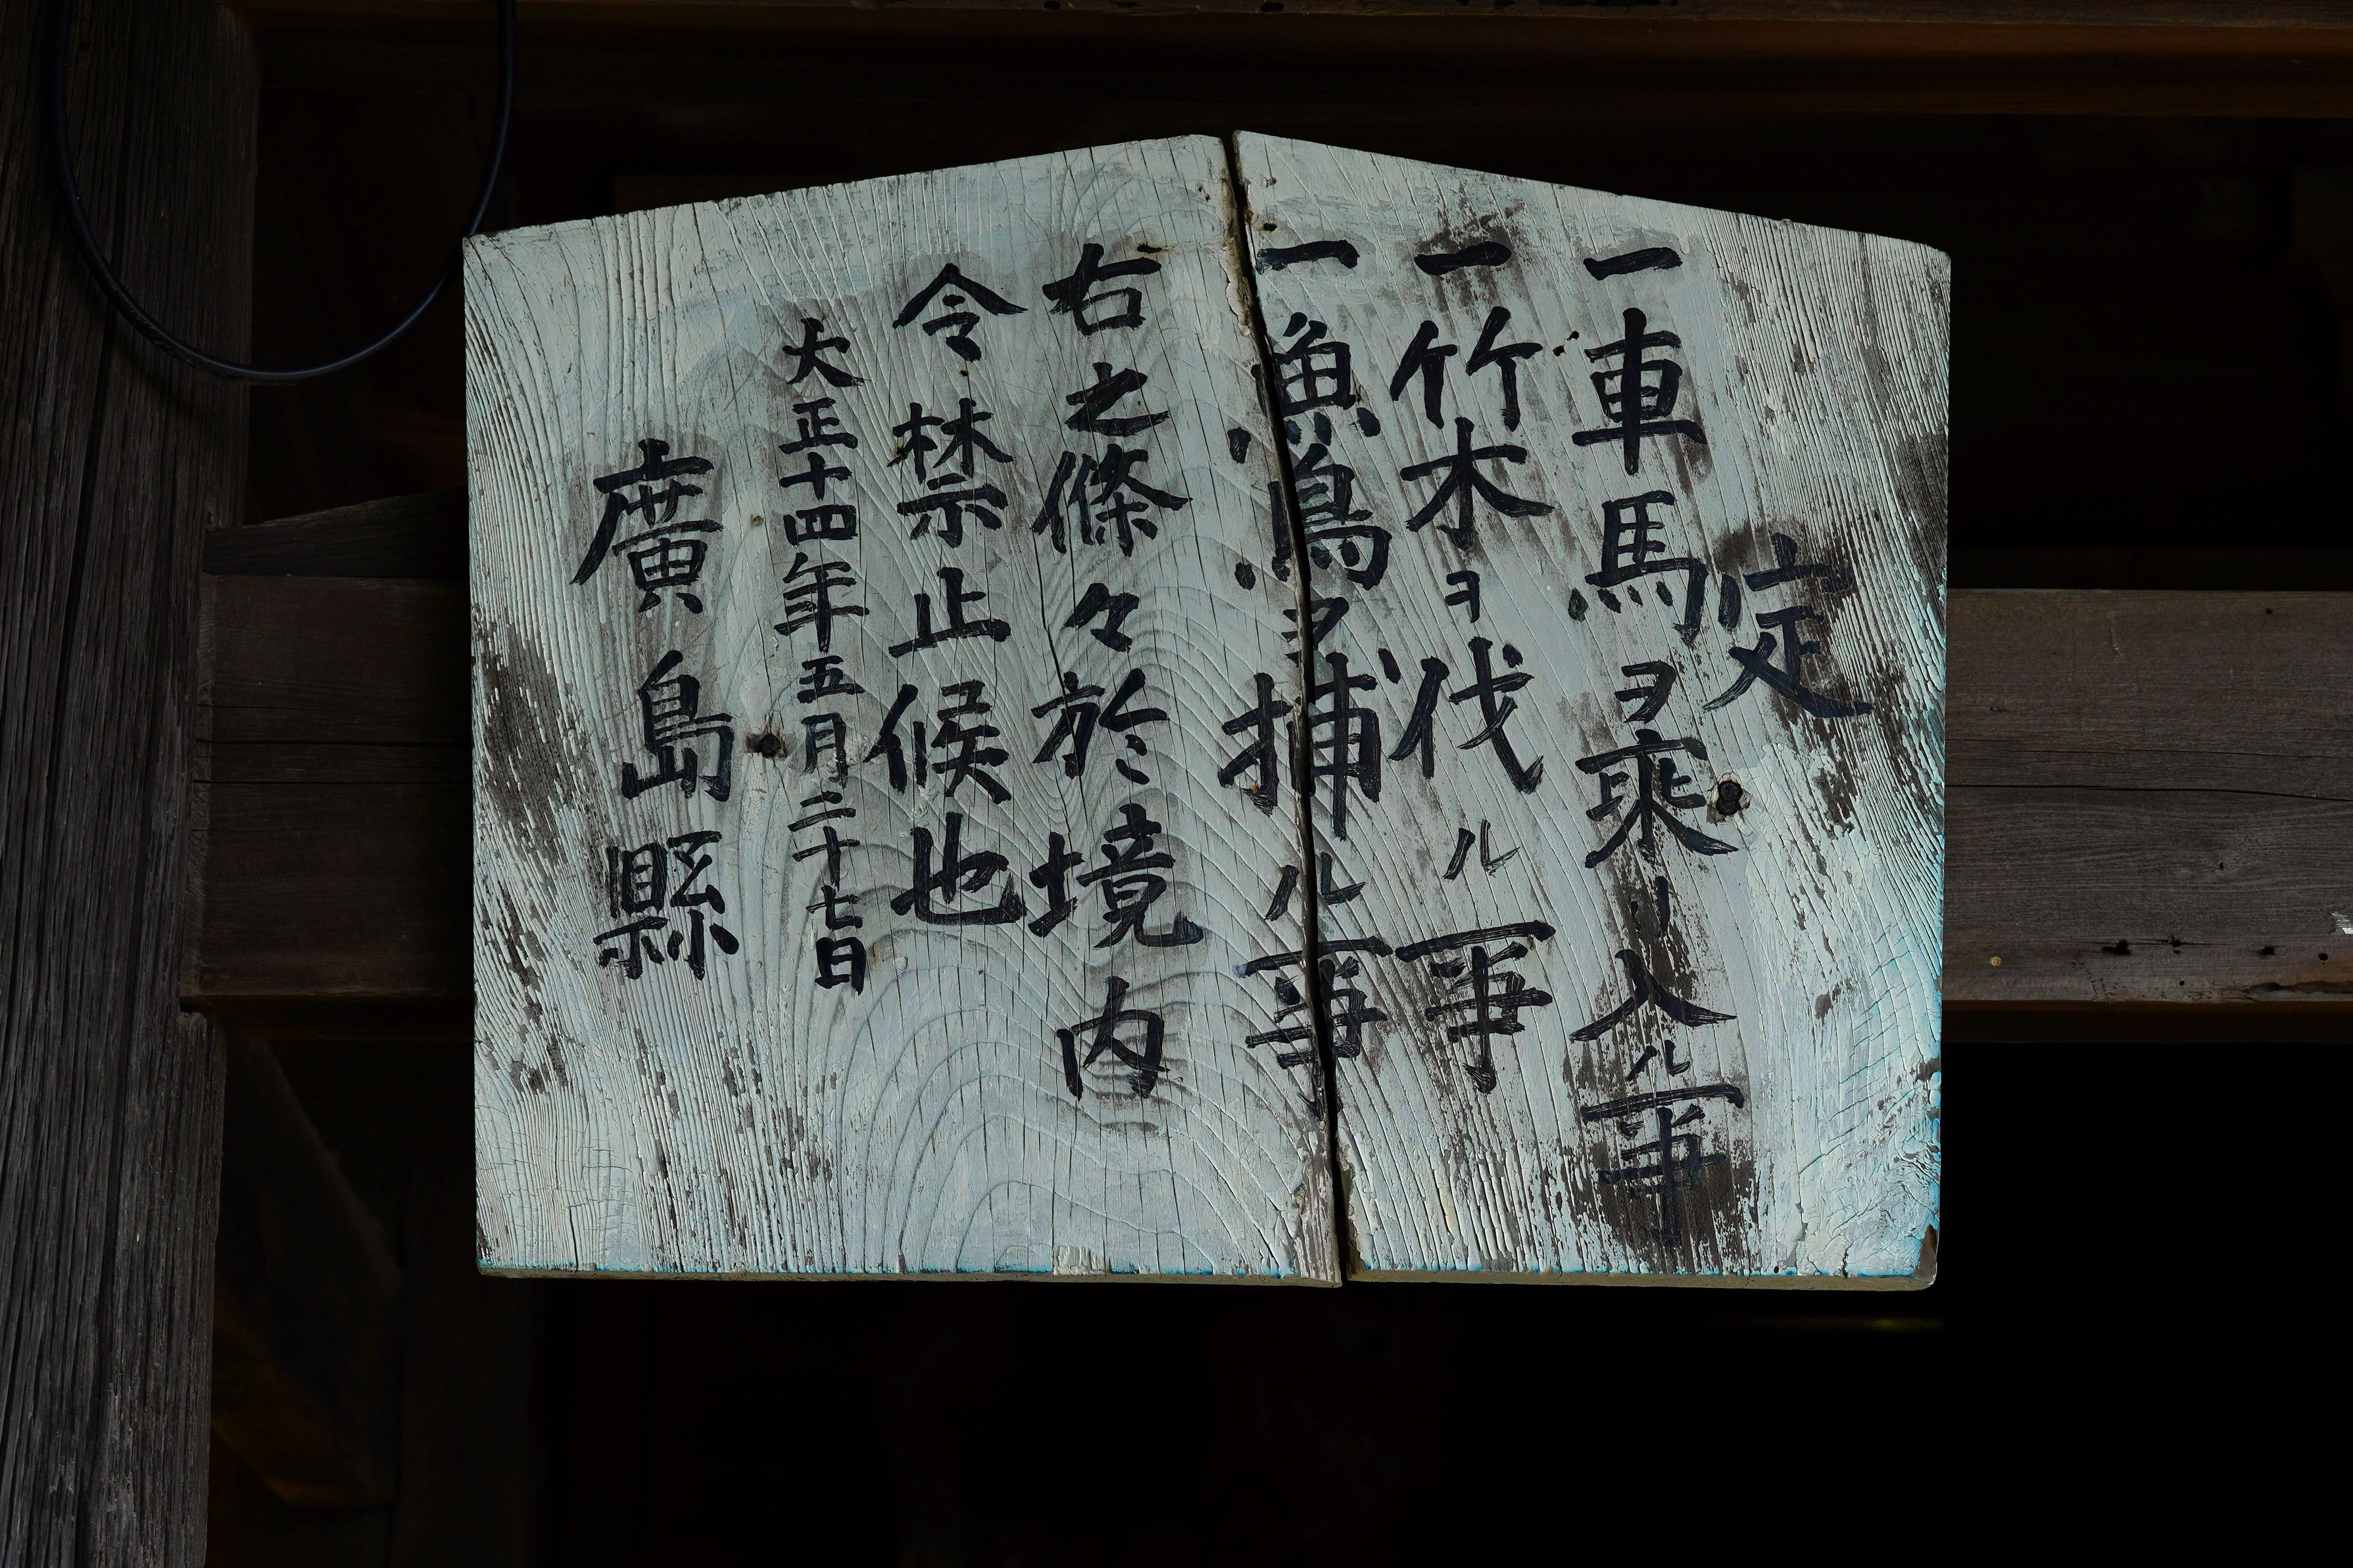 定
一車馬ヲ乗リ入ル事
一竹木ヲ伐ル事
一魚鳥ヲ捕ル事
右之條々於境内
令禁止候也
大正十四年五月二十七日
廣島縣